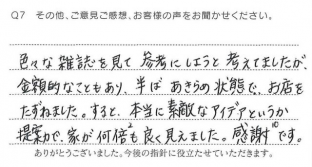 Q7 その他、ご意見ご感想、お客様の声をお聞かせください。
色々な雑誌を見て参考にしようと考えてましたが、
金額的なこともあり、半ばあきらめ状態で、お店を
たずねました。すると、本当に素敵なアイデアというか
提案力で、家が何倍も良く見えました。感謝です。
ありがとうございました。今後の指針に役立たせていただきます。